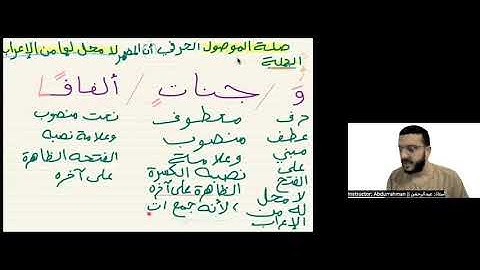 صلة الموصول الحرفي أن المصدر لا محل لها من الإعراب
الجملة
وَ / جنات / ألفافًا
حرف عطف مبني على الفتح لا محل له من الإعراب
معطوف منصوب وعلامة نصبه الكسرة الظاهرة على آخره لأنه جمع ات
نعت منصوب وعلامة نصبه الفتحة الظاهرة على آخره
Instructor; Abdurrahman
أستاذ: عبدالرحمن